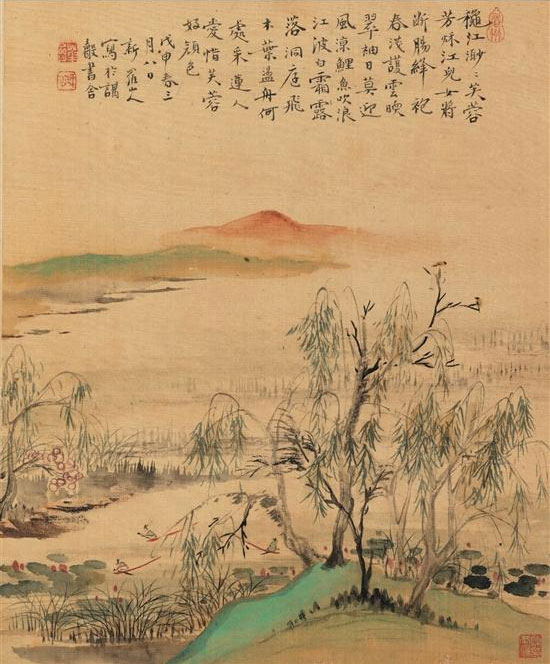 穐江渺〻芙蓉
芳秌江兒女將
断腸絳袍
春浅護雲暖
翠袖日莫迎
風涼鯉魚吹浪
江波白霜露
落洞庭飛
木葉盪舟何
處采蓮人
愛惜芙蓉
好顏色
戊申春三
月八日
新羅山人
寫於講
聲書舍